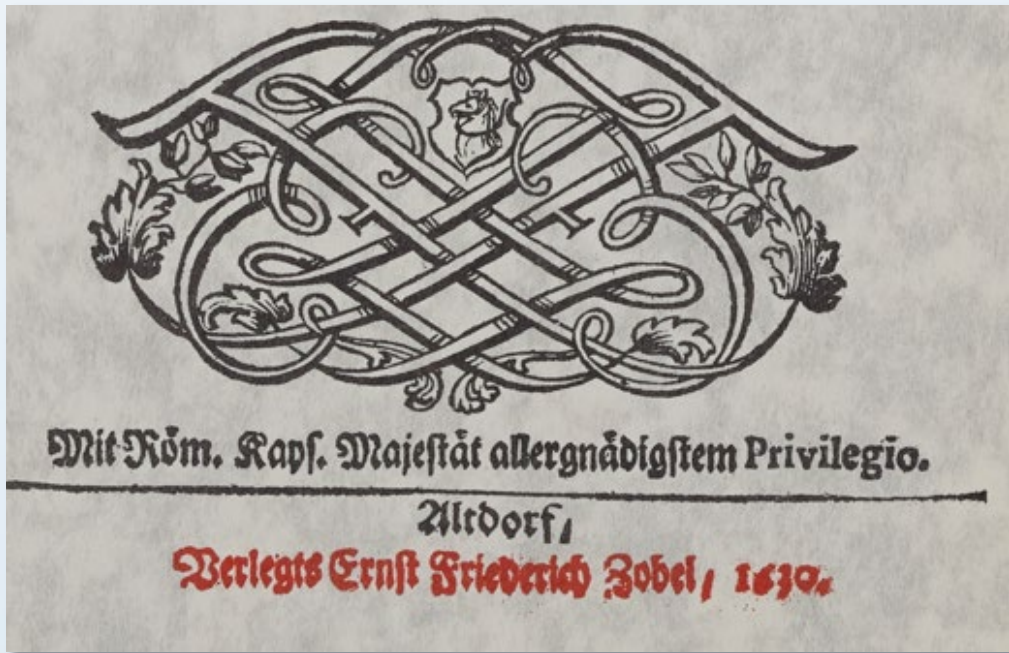 Mit Röm. Kayſ. Majeſtät allergnädigſtem Privilegio.
Altdorf,
Verlegts Ernſt Friederich Zobel, 1630.